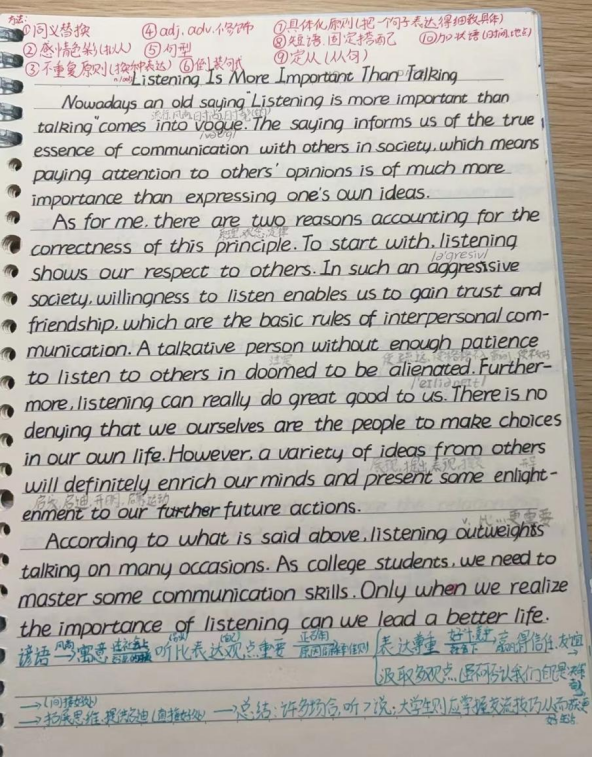 方法:
①同义替换 ④adj, adv.修饰 ⑦具体化原则(把一个句子表达得细致具体)
②感情色彩(拟人) ⑤句型 ⑧短语,固定搭配 ⑩加状语(时间,地点)
③不重复原则(换种表达) ⑥倒装句式 ⑨定从(从句)
Listening Is More Important Than Talking
Nowadays an old saying "Listening is more important than
talking" comes into vogue. The saying informs us of the true
essence of communication with others in society, which means
paying attention to others' opinions is of much more
importance than expressing one's own ideas.
As for me, there are two reasons accounting for the
correctness of this principle. To start with, listening
/ə'gresiv/
shows our respect to others. In such an aggressive
society, willingness to listen enables us to gain trust and
friendship, which are the basic rules of interpersonal com-
munication. A talkative person without enough patience
to listen to others in doomed to be alienated. Further-
more, listening can really do great good to us. There is no
denying that we ourselves are the people to make choices
in our own life. However, a variety of ideas from others
will definitely enrich our minds and present some enlight-
enment to our further future actions.
更重要
According to what is said above, listening outweights
talking on many occasions. As college students, we need to
master some communication skills. Only when we realize
the importance of listening can we lead a better life.
谚语 → 寓意 听比表达观点重要 表达尊重 赢得信任,友谊
汲取多观点
(间接好处)
→ 拓展思维,提供启迪(直接好处) → 总结:许多场合,听>说;大学生则应掌握交流技巧从而